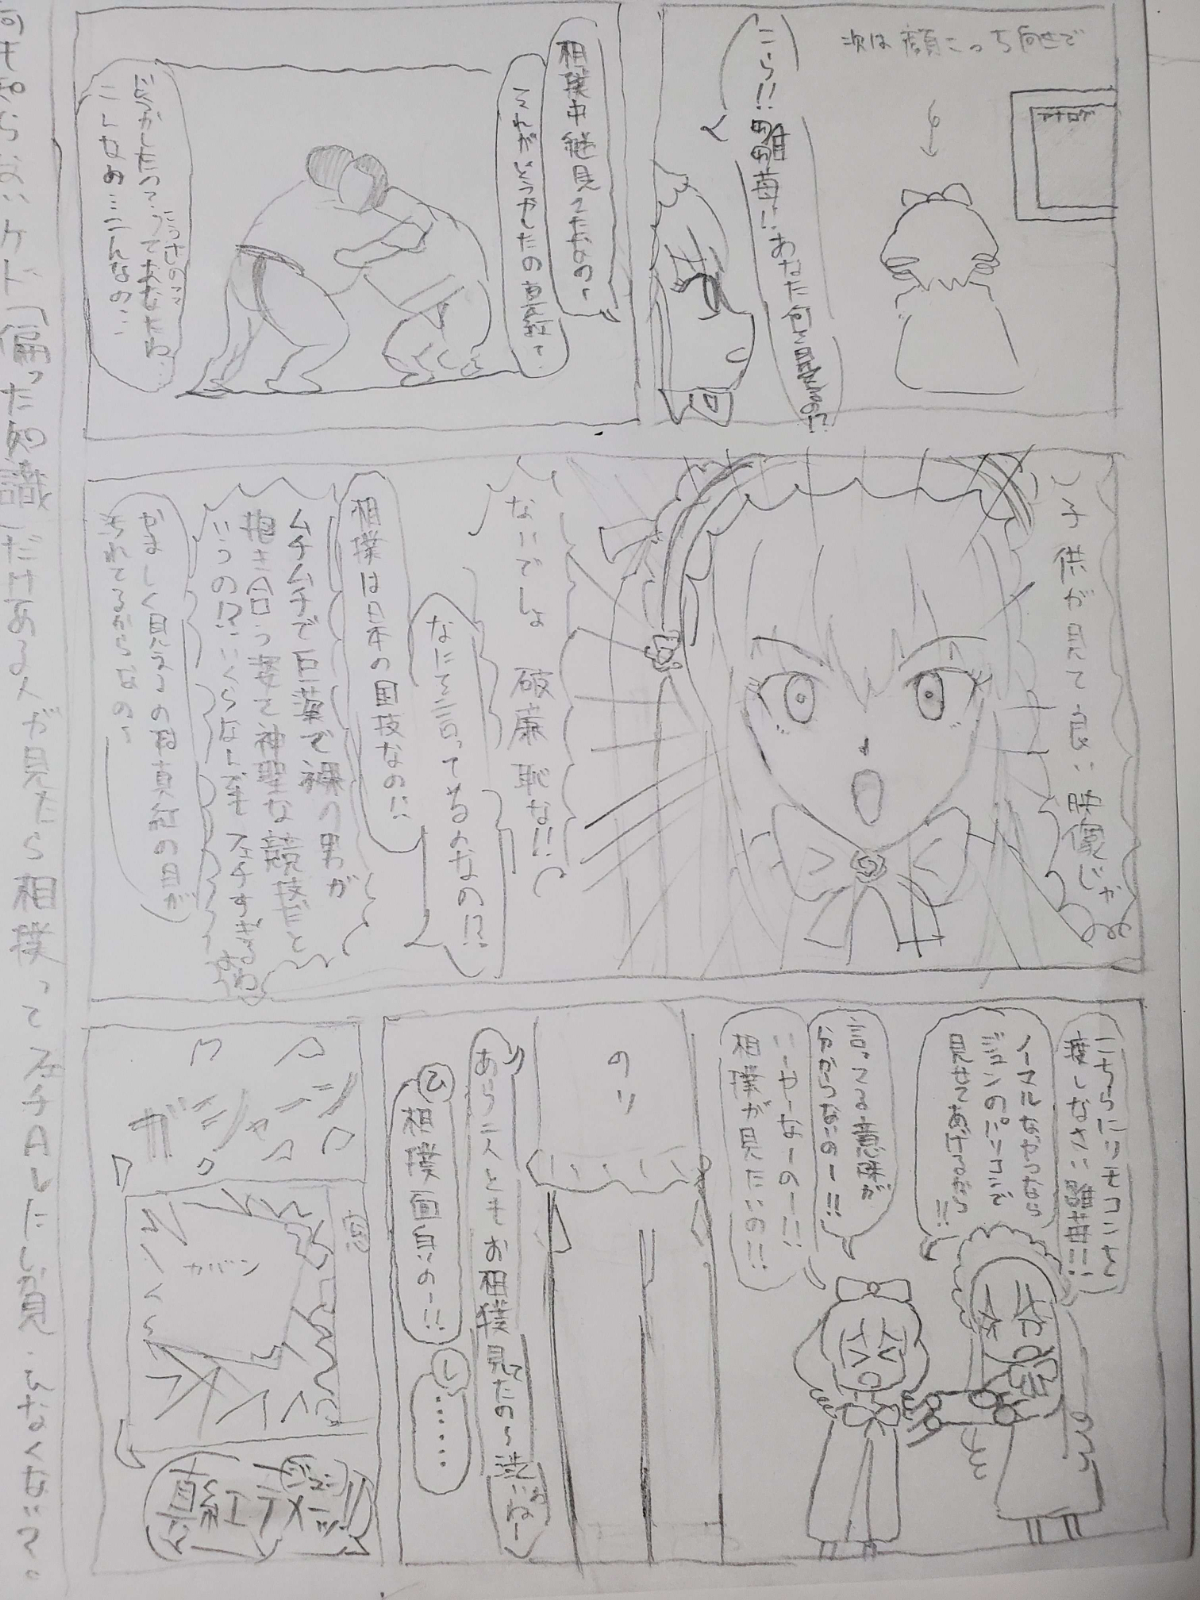 次は顔こっち向きで
アナログ
こら!!雛苺!!あなた何を
相撲中継見てたなの〜
それがどうかしたの真紅〜
どうかしたってって
こんなの…こんなの…
子供が見て良い映像じゃ
ないでしょ 破廉恥な!!
なにを言ってるのなの!?
相撲は日本の国技なの!!
ムチムチで巨漢で裸の男が
抱き合う姿を神聖な競技だと
いうの!?いくらなんでもフェチすぎるわね
やましく見えるのは真紅の目が
汚れてるからなの〜
こちらにリモコンを
渡しなさい雛苺!!!
ノーマルなやつなら
ジュンのパソコンで
見せてあげるから!!
言ってる意味が
分からないのー!!
いーやーなーのー!!
相撲が見たいの!!
のり
あら二人ともお相撲見てたの〜渋いねー
ひ 相撲面白いのー!!
し ……
ガシャーン
窓
ガバン
ジュン
真紅テメーッ!!
何も知らないケド「偏った知識」だけある人が見たら相撲ってフェチAVにしか見えなくない?。